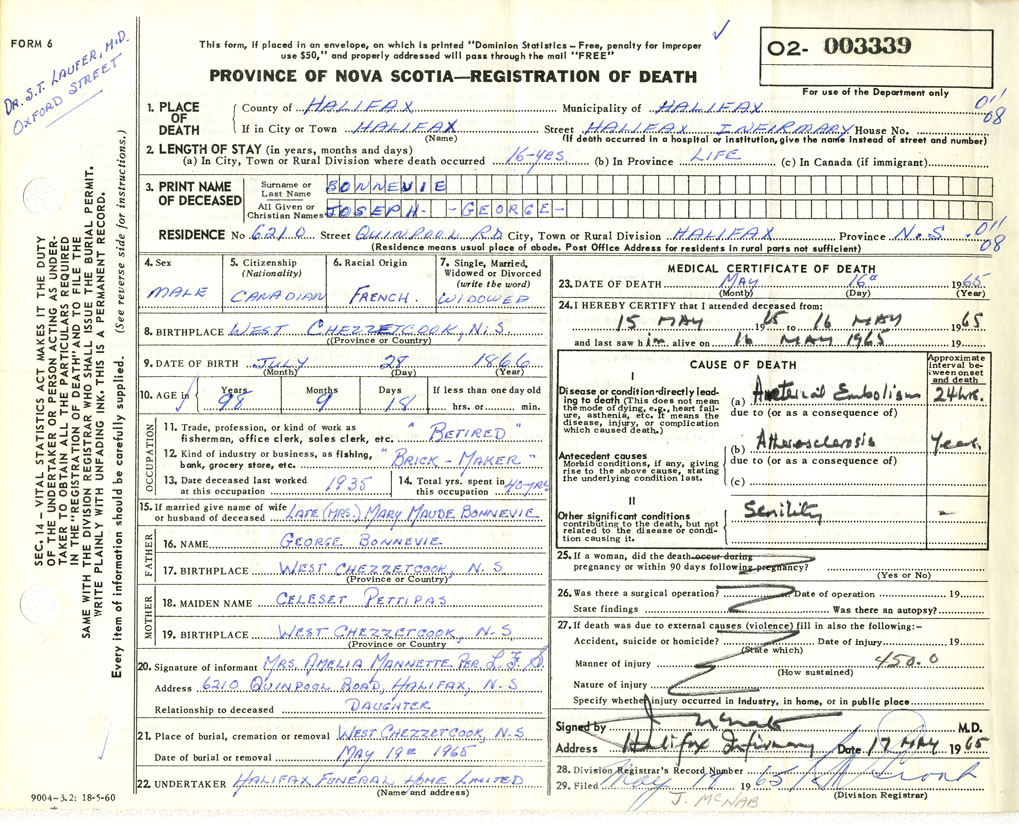 FORM 6
DR. S.T. LAUFER, M.D.
OXFORD STREET
This form, if placed in an envelope, on which is printed "Dominion Statistics – Free, penalty for improper
use $50," and properly addressed will pass through the mail "FREE"
PROVINCE OF NOVA SCOTIA—REGISTRATION OF DEATH
O2- 003339
For use of the Department only
SEC. 14 – VITAL STATISTICS ACT MAKES IT THE DUTY
OF THE UNDERTAKER OR PERSON ACTING AS UNDER-
TAKER TO OBTAIN ALL THE PARTICULARS REQUIRED
IN THE "REGISTRATION OF DEATH" AND TO FILE THE
SAME WITH THE DIVISION REGISTRAR WHO SHALL ISSUE THE BURIAL PERMIT.
WRITE PLAINLY WITH UNFADING INK. THIS IS A PERMANENT RECORD.
Every item of information should be carefully supplied. (See reverse side for instructions.)
1. PLACE OF DEATH
County of HALIFAX Municipality of HALIFAX
011
08
If in City or Town HALIFAX Street HALIFAX INFIRMARY House No.
(Name) (If death occurred in a hospital or institution, give the name instead of street and number)
2. LENGTH OF STAY (in years, months and days)
(a) In City, Town or Rural Division where death occurred 16-yrs (b) In Province LIFE (c) In Canada (if immigrant)
3. PRINT NAME OF DECEASED
Surname or Last Name BONNEVIE
All Given or Christian Names JOSEPH - -GEORGE-
RESIDENCE No 6210 Street QUINPOOL RD City, Town or Rural Division HALIFAX Province N.S. 011
08
(Residence means usual place of abode. Post Office Address for residents in rural parts not sufficient)
4. Sex
MALE
5. Citizenship
(Nationality)
CANADIAN
6. Racial Origin
FRENCH.
7. Single, Married,
Widowed or Divorced
(write the word)
WIDOWED
8. BIRTHPLACE WEST CHEZZETCOOK, N.S
(Province or Country)
9. DATE OF BIRTH JULY 28 1866
(Month) (Day) (Year)
10. AGE in
Years Months Days If less than one day old
98 9 18 hrs. or min.
OCCUPATION
11. Trade, profession, or kind of work as
fisherman, office clerk, sales clerk, etc. "RETIRED"
12. Kind of industry or business, as fishing,
bank, grocery store, etc. "BRICK-MAKER"
13. Date deceased last worked
at this occupation 1935
14. Total yrs. spent in
this occupation 40 YRS
15. If married give name of wife
or husband of deceased LATE (MRS.) MARY MAUDE BONNEVIE
FATHER
16. NAME GEORGE BONNEVIE
17. BIRTHPLACE WEST CHEZZETCOOK, N.S
(Province or Country)
MOTHER
18. MAIDEN NAME CELESET PETTIPAS
19. BIRTHPLACE WEST CHEZZETCOOK, N-S
(Province or Country
20. Signature of informant MRS. AMELIA MANNETTE PER. L.F.S.
Address 6210 QUINPOOL ROAD, HALIFAX, N-S
Relationship to deceased DAUGHTER
21. Place of burial, cremation or removal WEST CHEZZETCOOK, N.S
Date of burial or removal MAY 19th 1965
22. UNDERTAKER HALIFAX FUNERAL HOME LIMITED
(Name and address)
9004-3.2: 18-5-60
MEDICAL CERTIFICATE OF DEATH
23. DATE OF DEATH MAY 16th 1965
(Month) (Day) (Year)
24. I HEREBY CERTIFY that I attended deceased from:
15 MAY 1965 to 16 MAY 1965
and last saw him alive on 16 MAY 1965 19
CAUSE OF DEATH
Approximate
interval be-
tween onset
and death
I
Disease or condition directly lead-
ing to death (This does not mean
the mode of dying, e.g., heart fail-
ure, asthenia, etc. It means the
disease, injury, or complication
which caused death.)
(a) Arterial Embolism 24 hrs.
due to (or as a consequence of)
Antecedent causes
Morbid conditions, if any, giving
rise to the above cause, stating
the underlying condition last.
(b) Atherosclerosis Years
due to (or as a consequence of)
(c)
II
Other significant conditions
contributing to the death, but not
related to the disease or condi-
tion causing it.
Senility –
25. If a woman, did the death occur during
pregnancy or within 90 days following pregnancy?
(Yes or No)
26. Was there a surgical operation? Date of operation 19
State findings Was there an autopsy?
27. If death was due to external causes (violence) fill in also the following:-
Accident, suicide or homicide? Date of injury 19
(State which)
Manner of injury 450.0
(How sustained)
Nature of injury
Specify whether injury occurred in industry, in home, or in public place
Signed by J McNab M.D.
Address Halifax Infirmary Date 17 MAY 1965
28. Division Registrar's Record Number
29. Filed May 19 1965
(Division Registrar)
J. MCNAB